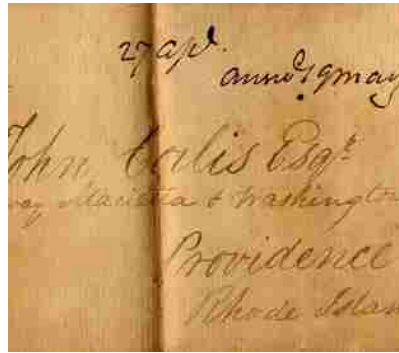 27 apl.
annod 19 may
John Corlis Esqr
way Marietta & Washington
Providence
Rhode Islan